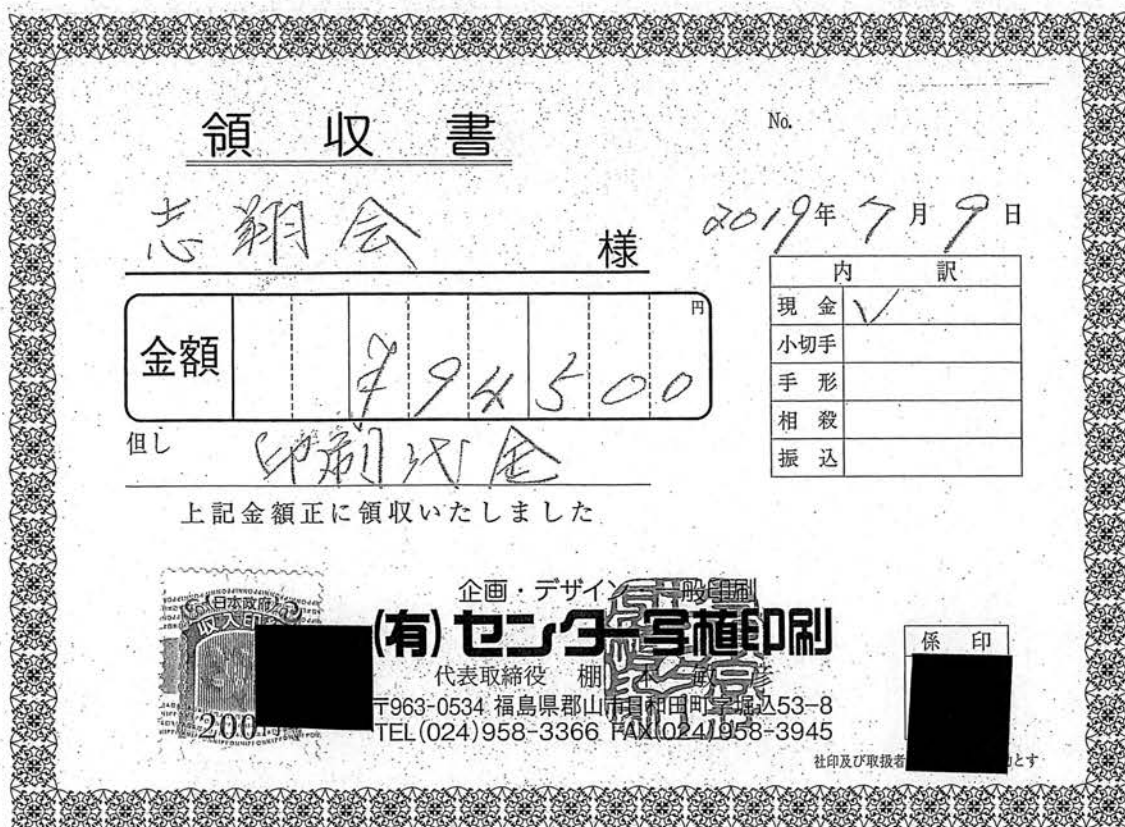 領収書
No.
志翔会 様
2019年7月9日
内訳
現金 ✓
小切手
手形
相殺
振込
金額 ¥94500 円
但し 印刷代金
上記金額正に領収いたしました
日本政府
収入印
200
企画・デザイン 一般印刷
(有)センター写植印刷
代表取締役 棚木 敏彦
〒963-0534 福島県郡山市日和田町字堀込53-8
TEL(024)958-3366 FAX(024)958-3945
係印
社印及び取扱者 とす